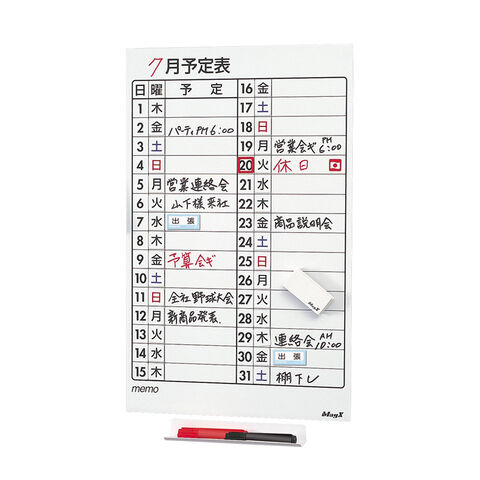 7月予定表
日 曜 予定
1 木
2 金 パーティPM6:00
3 土
4 日
5 月 営業連絡会
6 火 山下様来社
7 水 出張
8 木
9 金 予算会ギ
10 土
11 日 全社野球大会
12 月 新商品発表.
13 火
14 水
15 木
16 金
17 土
18 日
19 月 営業会ギPM6:00
20 火 休日
21 水
22 木
23 金 商品説明会
24 土
25 日
26 月
27 火
28 水
29 木 連絡会AM10:00
30 金 出張
31 土 棚下し
memo
MagX
MagX